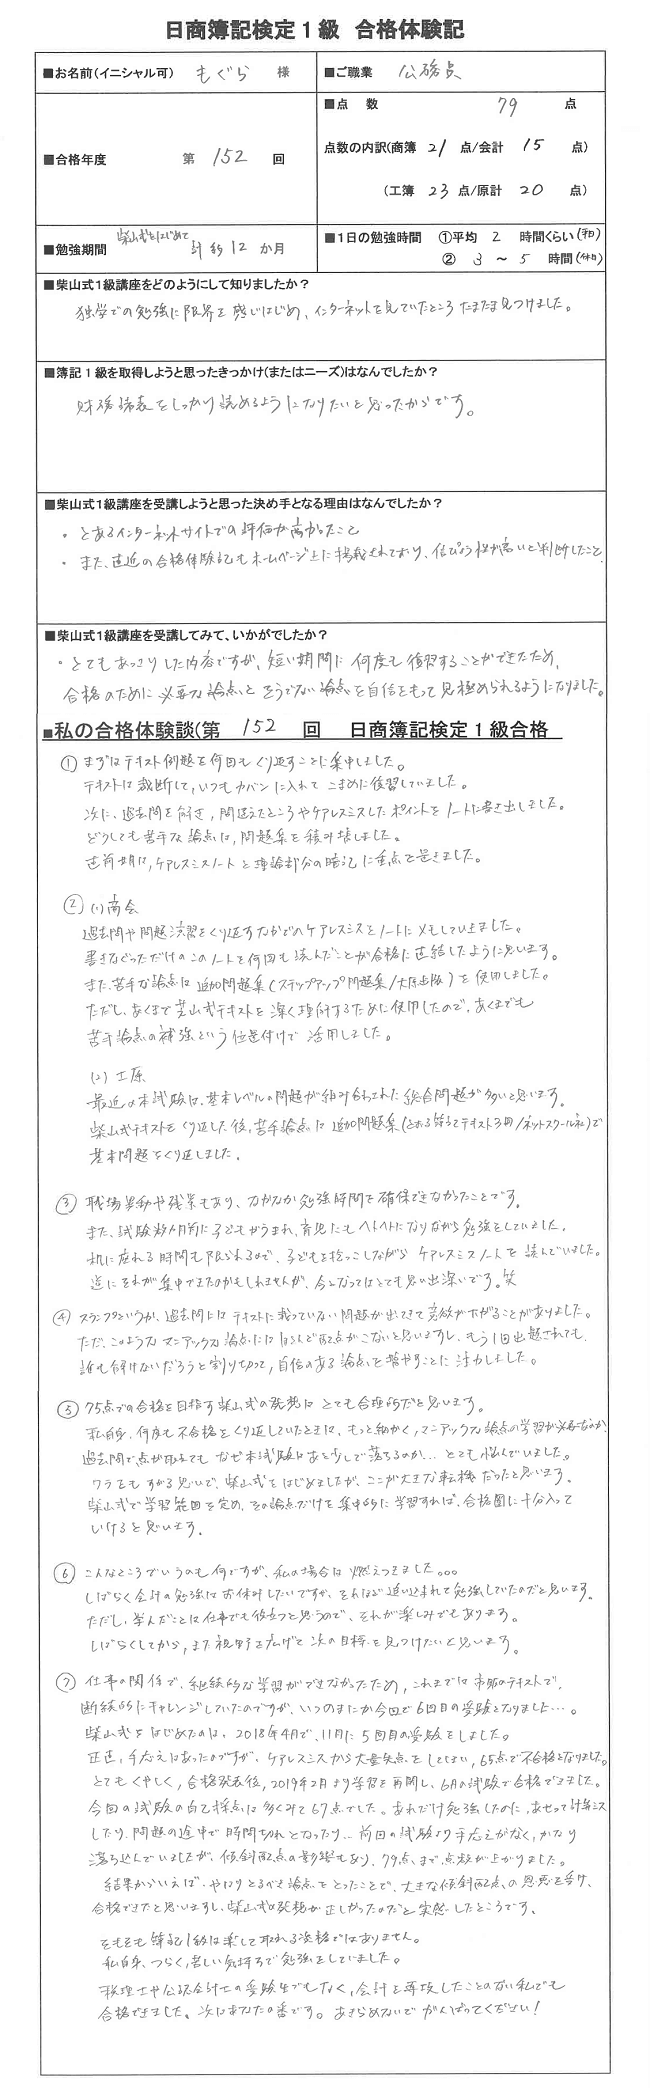 日商簿記検定1級 合格体験記
■お名前(イニシャル可) もぐら 様
■ご職業 公務員
■合格年度 第 152 回
■点 数 79 点
点数の内訳(商簿 21 点/会計 15 点)
(工簿 23 点/原計 20 点)
■勉強期間 柴山式をはじめて 計約12 か月
■1日の勉強時間 ①平均 2 時間くらい(平日)
② 3 ~ 5 時間(休日)
■柴山式1級講座をどのようにして知りましたか?
独学での勉強に限界を感じはじめ、インターネットを見ていたところたまたま見つけました。
■簿記1級を取得しようと思ったきっかけ(またはニーズ)はなんでしたか?
財務諸表をしっかり読めるようになりたいと思ったからです。
■柴山式1級講座を受講しようと思った決め手となる理由はなんでしたか?
・とあるインターネットサイトでの評価が高かったこと
・また、直近の合格体験記もホームページ上に掲載されており、信ぴょう性が高いと判断したこと。
■柴山式1級講座を受講してみて、いかがでしたか?
・とてもあっさりした内容ですが、短い期間に何度も復習することができたため、
合格のために必要な論点とそうでない論点を自信をもって見極められるようになりました。
■私の合格体験談(第 152 回 日商簿記検定1級合格
① まずはテキスト例題を何回もくり返すことに集中しました。
テキストは裁断して、いつもカバンに入れてこまめに復習していました。
次に、過去問を解き、間違えたところやケアレスミスしたポイントをノートに書き出しました。
どうしても苦手な論点は、問題集を積み増しました。
直前期は、ケアレスミスノートと理論部分の暗記に重点を置きました。
② (1)商会
過去問や問題演習をくり返すなかでのケアレスミスをノートにメモしていました。
書きなぐっただけのこのノートを何回も読んだことが合格に直結したように思います。
また、苦手な論点は追加問題集(ステップアップ問題集/大原出版)を使用しました。
ただし、あくまで柴山式テキストを深く理解するために使用したので、あくまでも
苦手論点の補強という位置付けで活用しました。
(2)工原
最近の本試験は、基本レベルの問題が組み合わされた総合問題が多いと思います。
柴山式テキストをくり返した後、苦手論点は追加問題集(とおる簿記テキスト3冊/ネットスクール社)で
基本問題をくり返しました。
③ 職場異動や残業もあり、なかなか勉強時間を確保できなかったことです。
また、試験数か月前に子どもがうまれ、育児にもヘトヘトになりながら勉強をしていました。
机に座れる時間も限られるので、子どもを抱っこしながらケアレスミスノートを読んでいました。
逆にそれが集中できたのかもしれませんが、今となってはとても思い出深いです。笑
④ スランプというか、過去問にはテキストに載っていない問題が出てきて意欲が下がることがありました。
ただ、このようなマニアックな論点にはほとんど配点がこないと思いますし、もう1回出題されても、
誰も解けないだろうと割り切って、自信のある論点を増やすことに注力しました。
⑤ 75点での合格を目指す柴山式の発想はとても合理的だと思います。
私自身、何度も不合格をくり返していたときは、もっと細かく、マニアックな論点の学習が必要なのか、
過去問で点が取れてもなぜ本試験はあと少しで落ちるのか… とても悩んでいました。
ワラをもすがる思いで、柴山式をはじめましたが、ここが大きな転機だったと思います。
柴山式で学習範囲を定め、その論点だけを集中的に学習すれば、合格圏に十分入って
いけると思います。
⑥ こんなところでいうのも何ですが、私の場合は燃えつきました。。。
しばらく会計の勉強はお休みしたいですが、それほど追い込まれて勉強していたのだと思います。
ただし、学んだことは仕事でも役立つと思うので、それが楽しみでもあります。
しばらくしてから、また視野を広げて次の目標を見つけたいと思います。
⑦ 仕事の関係で、継続的な学習ができなかったため、これまでは市販のテキストで、
断続的にチャレンジしていたのですが、いつのまにか今回で6回目の受験となりました…。
柴山式をはじめたのは、2018年4月で、11月に5回目の受験をしました。
正直、手応えはあったのですが、ケアレスミスから大量失点をしてしまい、65点で不合格となりました。
とてもくやしく、合格発表後、2019年2月より学習を再開し、6月の試験で合格できました。
今回の試験の自己採点は多くみて67点でした。あれだけ勉強したのに、あせって計算ミス
したり、問題の途中で時間切れとなったり… 前回の試験より手応えがなく、かなり
落ち込んでいましたが、傾斜配点の影響もあり、79点まで点数が上がりました。
結果からいえば、やはりとるべき論点をとったことで、大きな傾斜配点の恩恵を受け、
合格できたと思いますし、柴山式の発想が正しかったのだと実感したところです。
そもそも簿記1級は楽して取れる資格ではありません。
私自身、つらく、苦しい気持ちで勉強をしていました。
税理士や公認会計士の受験生でもなく、会計を専攻したことのない私でも
合格できました。次はあなたの番です。あきらめないでがんばってください!